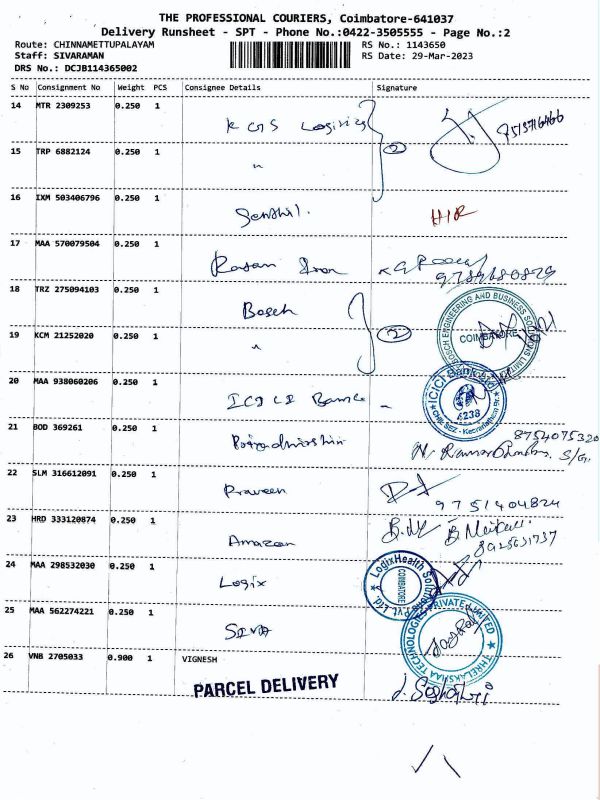 THE PROFESSIONAL COURIERS, Coimbatore-641037
Delivery Runsheet - SPT - Phone No.:0422-3505555 - Page No.:2
Route: CHINNAMETTUPALAYAM RS No.: 1143650
Staff: SIVARAMAN RS Date: 29-Mar-2023
DRS No.: DCJB114365002
S No Consignment No Weight PCS Consignee Details Signature
14 MTR 2309253 0.250 1 KGS Logistics
2
15 TRP 6882124 0.250 1 "
16 IXM 503406796 0.250 1 Senthil.
17 MAA 570079504 0.250 1
18 TRZ 275094103 0.250 1 Bosch BOSCH ENGINEERING AND BUSINESS SOLUTIONS LIMITED
COIMBATORE
2
19 KCM 21252020 0.250 1 "
20 MAA 938060206 0.250 1 ICICI Bank ICICI Bank Ltd
6238
21 BOD 369261 0.250 1 8754075320
S/G.
22 SLM 316612091 0.250 1 Praveen 9751404824
23 HRD 333120874 0.250 1 Amazon
24 MAA 298532030 0.250 1 Logix LogixHealth Solutions Pvt Ltd
COIMBATORE
25 MAA 562274221 0.250 1 THRELAKSHAA TECHNOLOGIES PRIVATE LIMITED
26 VNB 2705033 0.900 1 VIGNESH
PARCEL DELIVERY